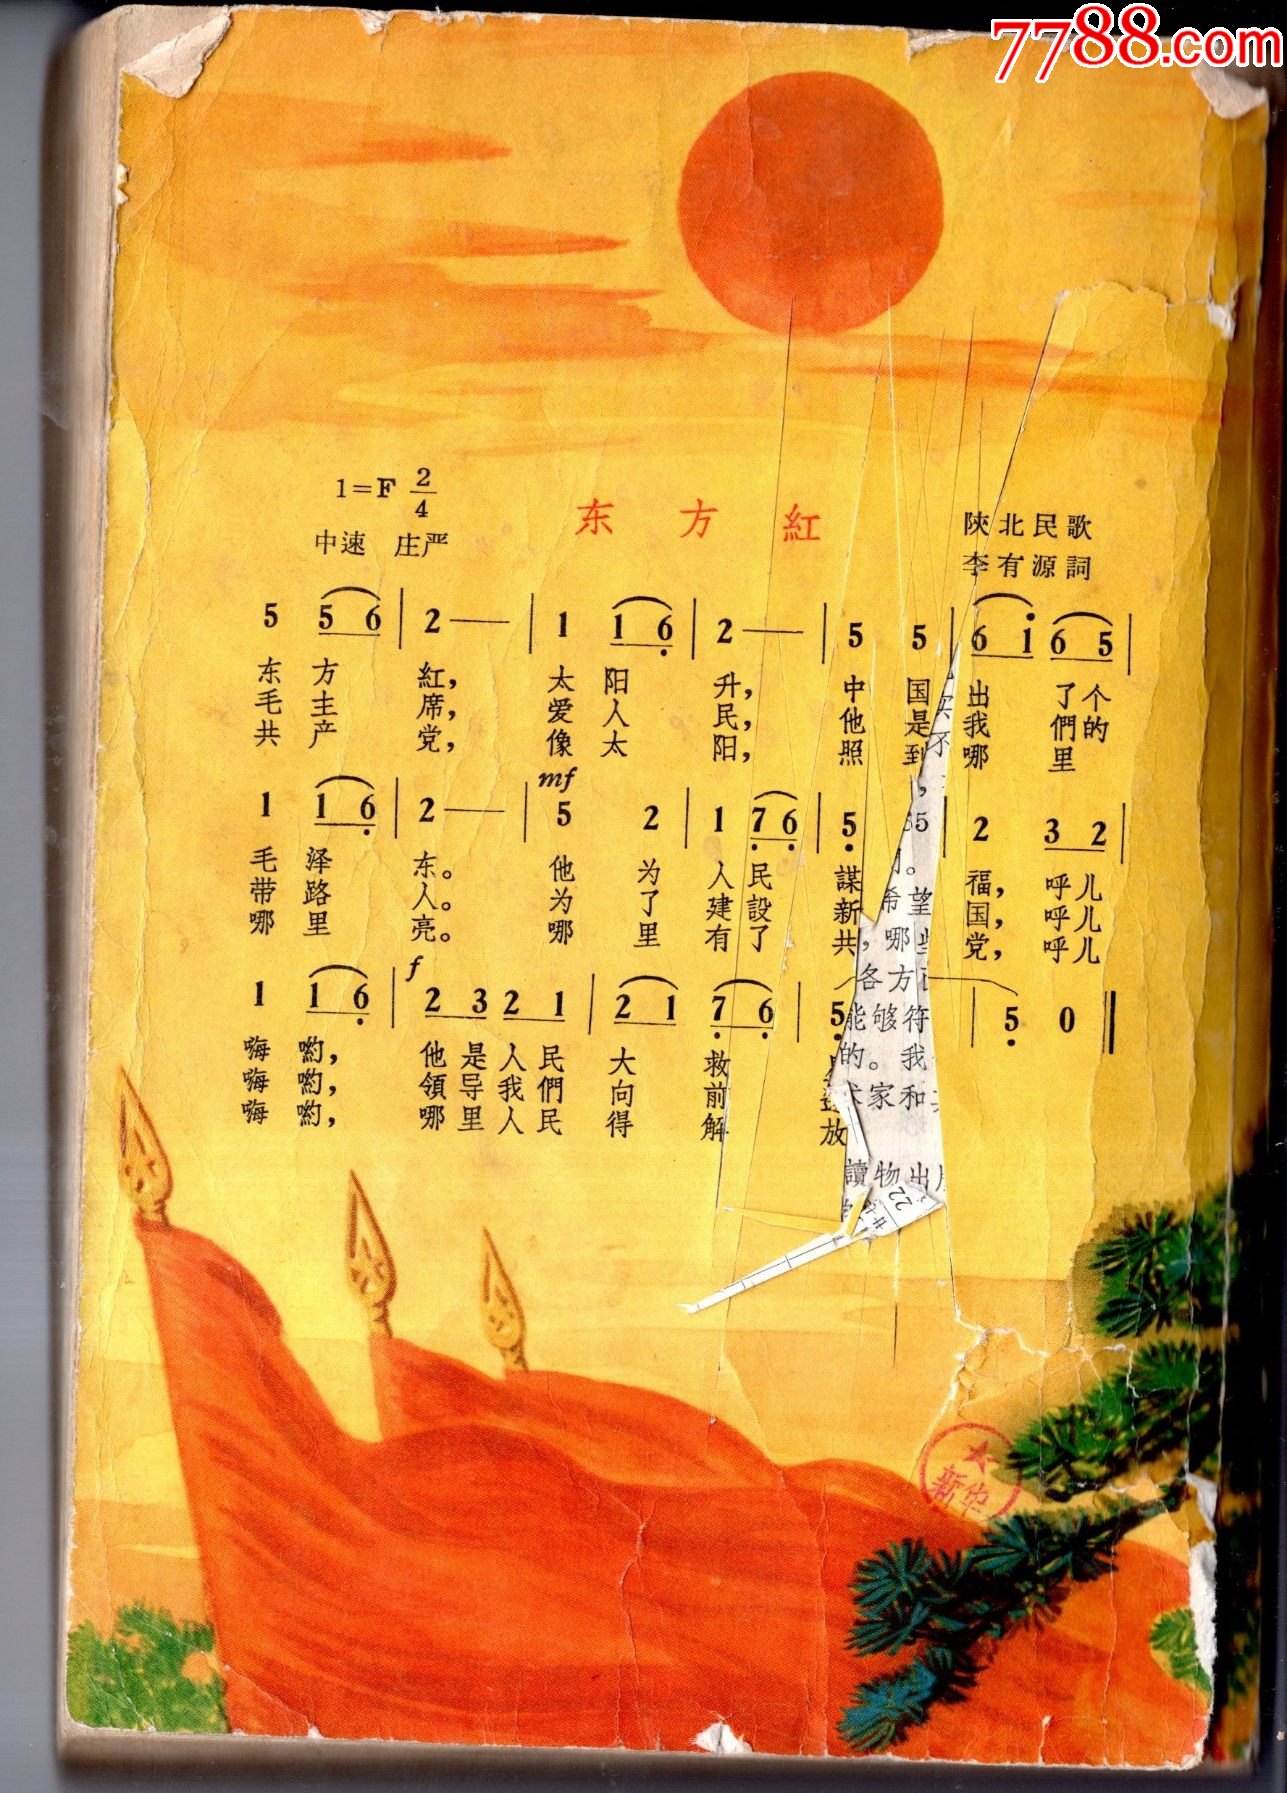 7788.com
1=F 2/4
中速 庄严
东方紅
陝北民歌
李有源詞
5 5 6 | 2 — | 1 1 6 | 2 — | 5 5 | 6 1 6 5 |
东方紅，太阳升，中国出了个
毛主席，爱人民，他是我們的
共产党，像太阳，照到哪里
mf
1 1 6 | 2 — | 5 2 | 1 7 6 | 5 5 | 2 3 2 |
毛泽东。他为人民謀福，呼儿
带路人。为了建設新国，呼儿
哪里亮。哪里有了共党，呼儿
，哪
希望
f
1 1 6 | 2 3 2 1 | 2 1 7 6 | 5 | 5 0 ‖
嗨喲，他是人民大救
嗨喲，領导我們向前
嗨喲，哪里人民得解放
各方
能够符
的。我
术家和
讀物出
22
新华